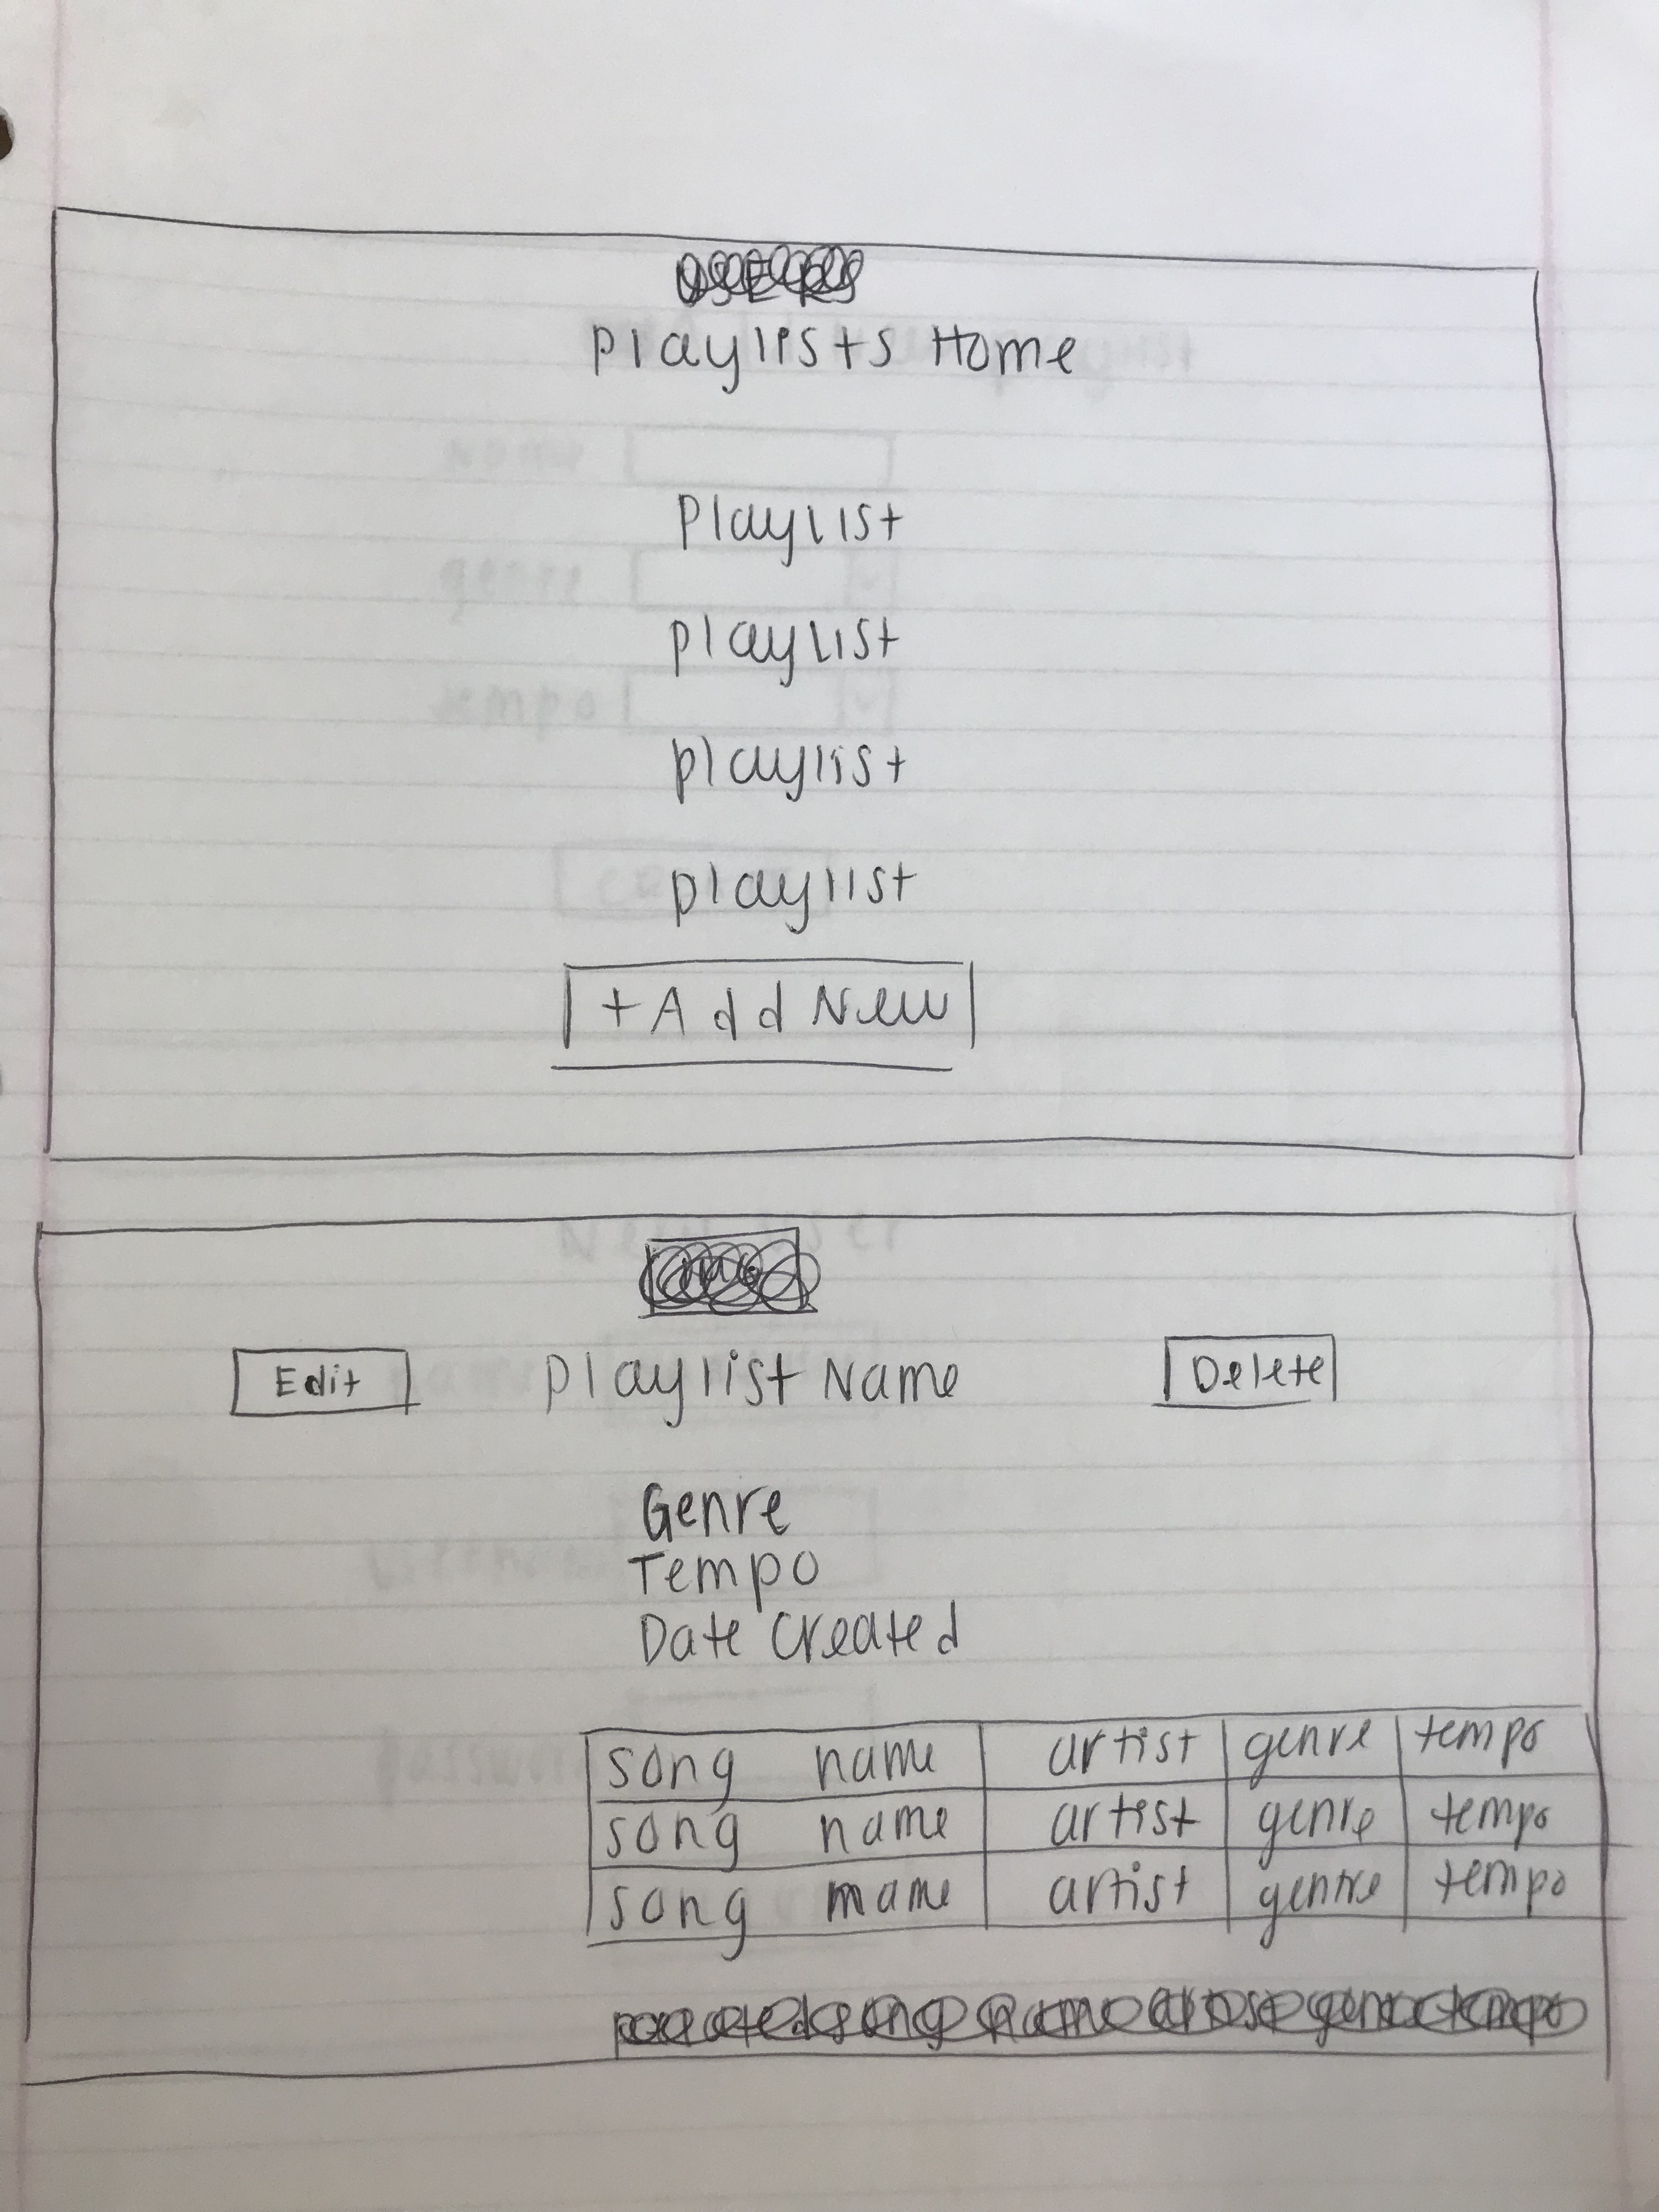 Playlists Home
Playlist
playlist
playlist
playlist
+ Add New
Edit Playlist Name Delete
Genre
Tempo
Date Created
song name artist genre tempo
song name artist genre tempo
song name artist genre tempo